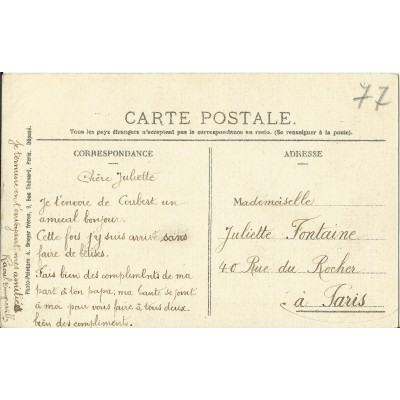 77
CARTE POSTALE.
Tous les pays étrangers n'acceptent pas la correspondance au recto. (Se renseigner à la poste).
CORRESPONDANCE
Chère Juliette
Je t'envoie de Coubert un
amical bonjour.
Cette fois j'y suis arrivé sans
faire de bêtises.
Fais bien des compliments de ma
part à ton papa; ma tante se joint
à moi pour vous faire à tous deux
bien des compliments.
Je termine en t'envoyant mes amitiés
Raoul
Phototypie Dreyer Frères, Paris. Déposé.
ADRESSE
Mademoiselle
Juliette Fontaine
40 Rue du Rocher
à Paris